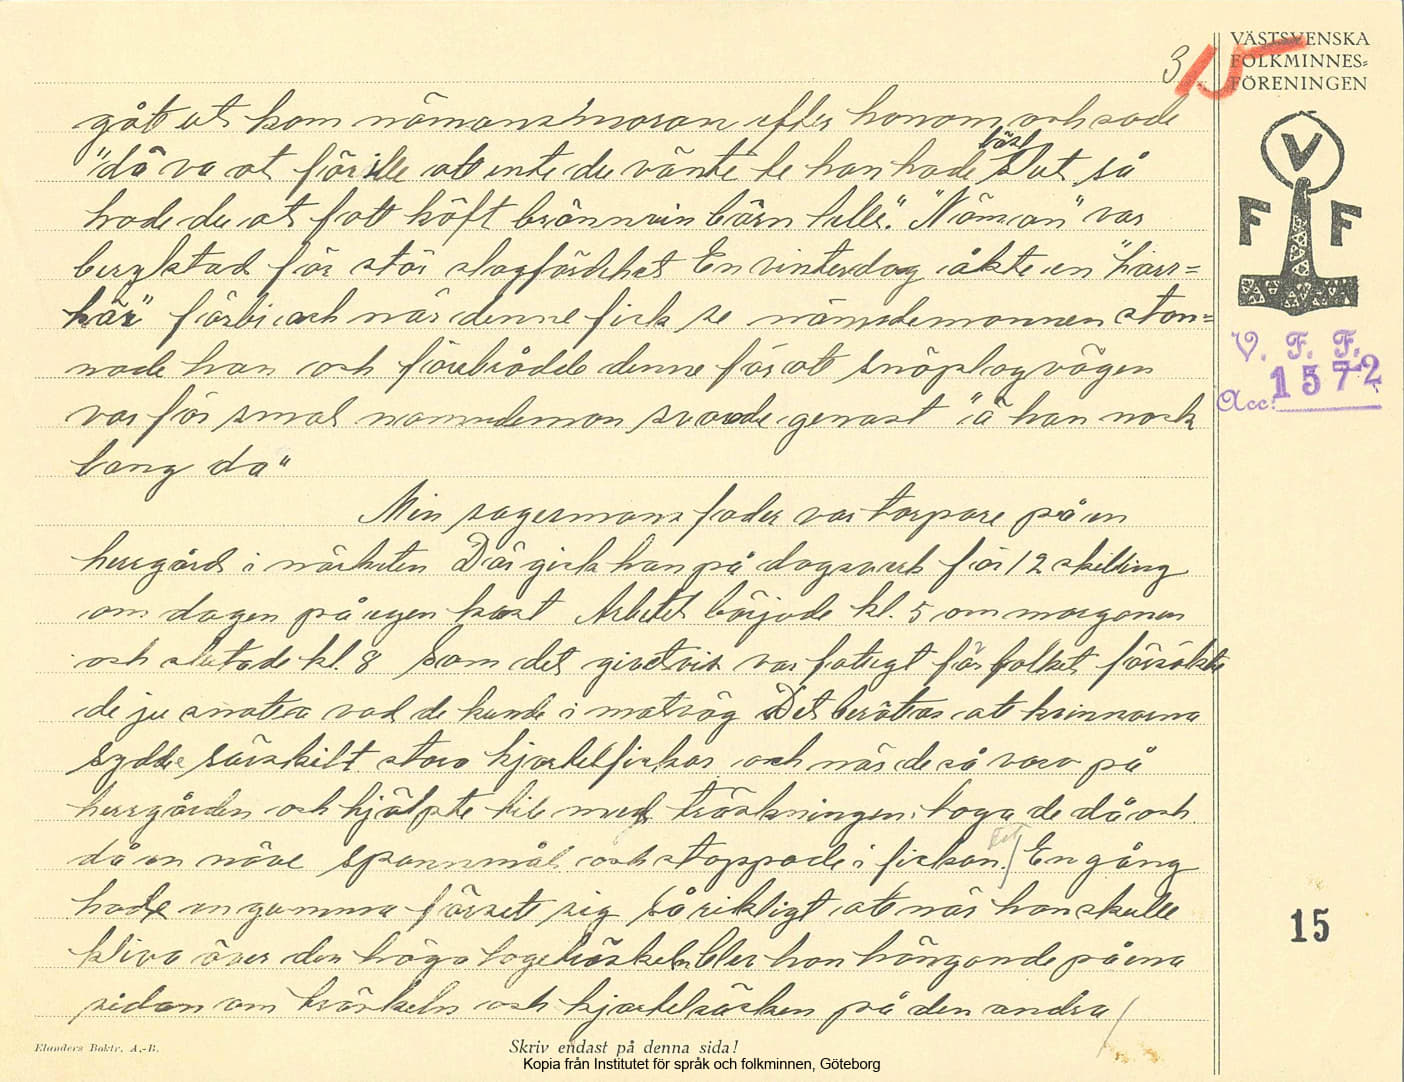 3 15
VÄSTSVENSKA
FOLKMINNES-
FÖRENINGEN
gåt ut kom nämansmoran efter honom och sade
"dä va at för ille att inte du vänte te han hade läst Ut, så
hade du at fatt köft brännvin bärn helle". "Näman" var
beryktad för stor slagfärdihet En vinterdag åkte en "härr=
kär" förbi och när denne fick se nämdemannen stan=
nade han och förebrådde denne för att snöplogvägen
var för smal namndemon svarade genast "ä han nock
bang da"
Min sagesmans fader var torpare på en
herrgård i närheten Där gick han på dagsverk för 12 skilling
om dagen på egen kost Arbetet började kl. 5 om morgonen
och slutade kl. 8 Som det givetvis var fatigt för folket försökte
de ju snatta vad de kunde i matväg Det berättas att kvinnorna
sydde särskilt stora kjortelfickor och när de så voro på
herrgården och hjälpte till med tröskningen, toga de då och
då en näve spannmål och stoppade i fickan. En gång
hade en gumma försett sig så rikligt att när hon skulle
kliva över den höga logetröskeln blev hon hängande på ena
sidan om tröskeln och kjortelsäcken på den andra
V
F F
V. F. F.
Acc: 1572
15
Elanders Boktr. A.-B.
Skriv endast på denna sida!
Kopia från Institutet för språk och folkminnen, Göteborg